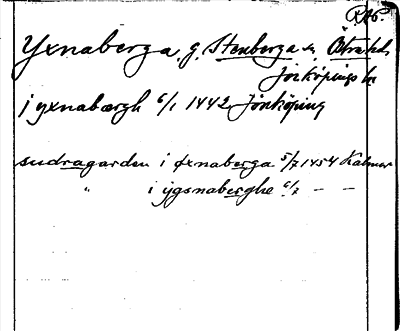 RAp.
Yxnaberga, g. Stenberga sn, Östra hd.
Jönköpings län
j yxnabærgh 6/1 1442 Jönköping
sudragarden i øxnaberga 5/7 1454 Kalmar
" i ygsnaberghe 6/7 — —